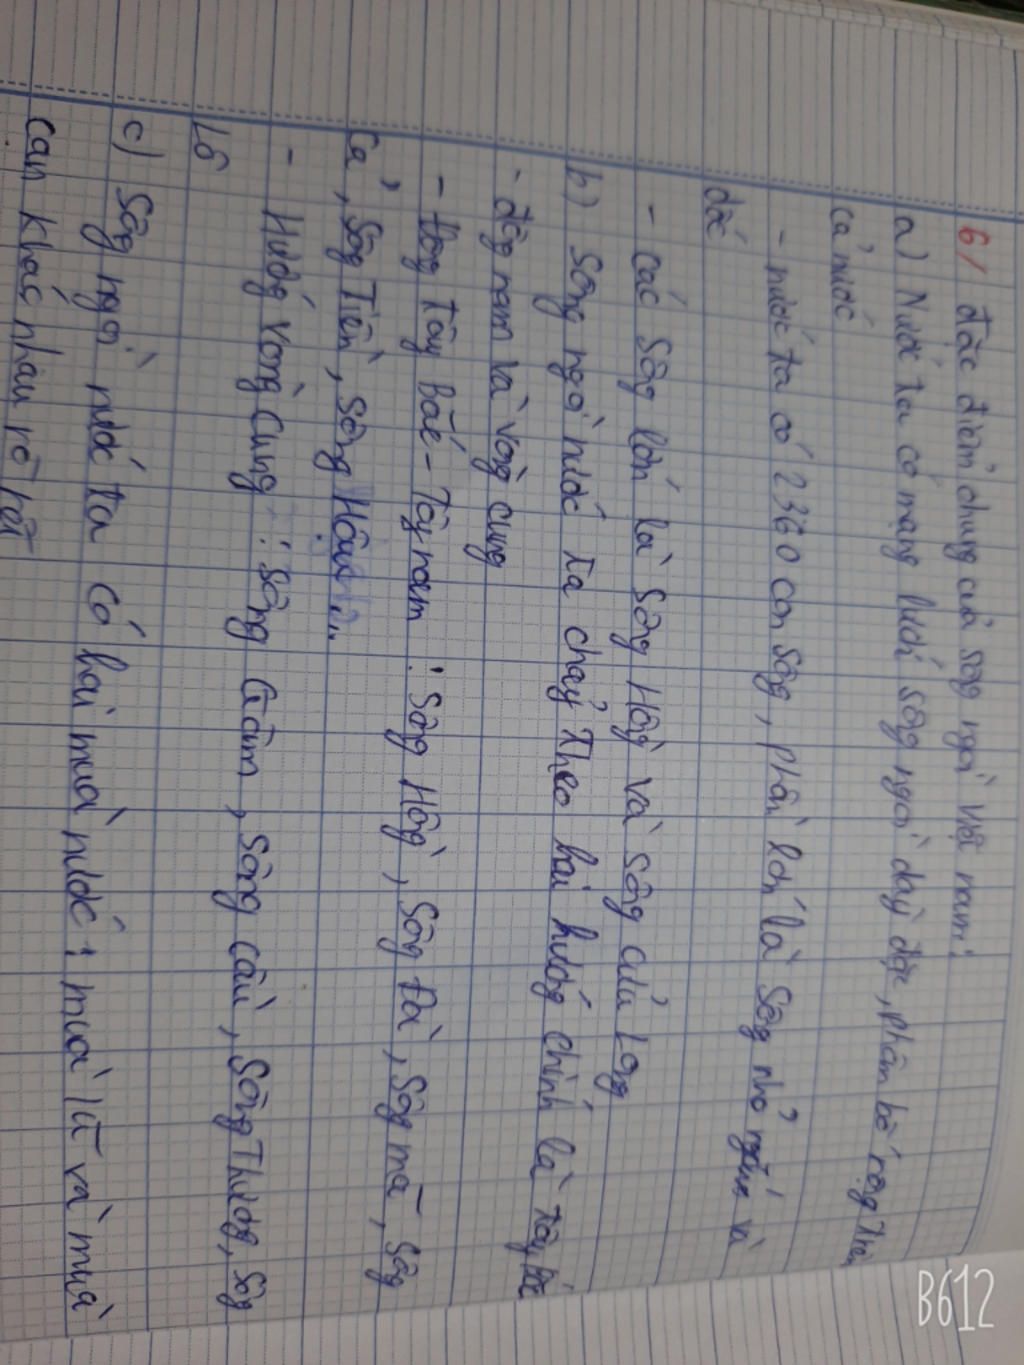 6/ đặc điểm chung của sông ngòi việt nam:
a) Nước ta có mạng lưới sông ngòi dày đặc, phân bố rộng trên
cả nước
- nước ta có 2360 con sông, phần lớn là sông nhỏ ngắn và
dốc
- các sông lớn là sông Hồng và sông cửu Long
b) Sông ngòi nước ta chảy theo hai hướng chính là tây bắc
- đông nam và vòng cung
- Hướng tây Bắc - Tây nam : Sông Hồng, sông Đà, sông mã, sông
cả, sông Tiền, sông Hậu...
- Hướng vòng cung : sông Gâm, sông cầu, sông Thương, sông
Lô
c) Sông ngòi nước ta có hai mùa nước: mùa lũ và mùa
cạn khác nhau rõ rệt
B612